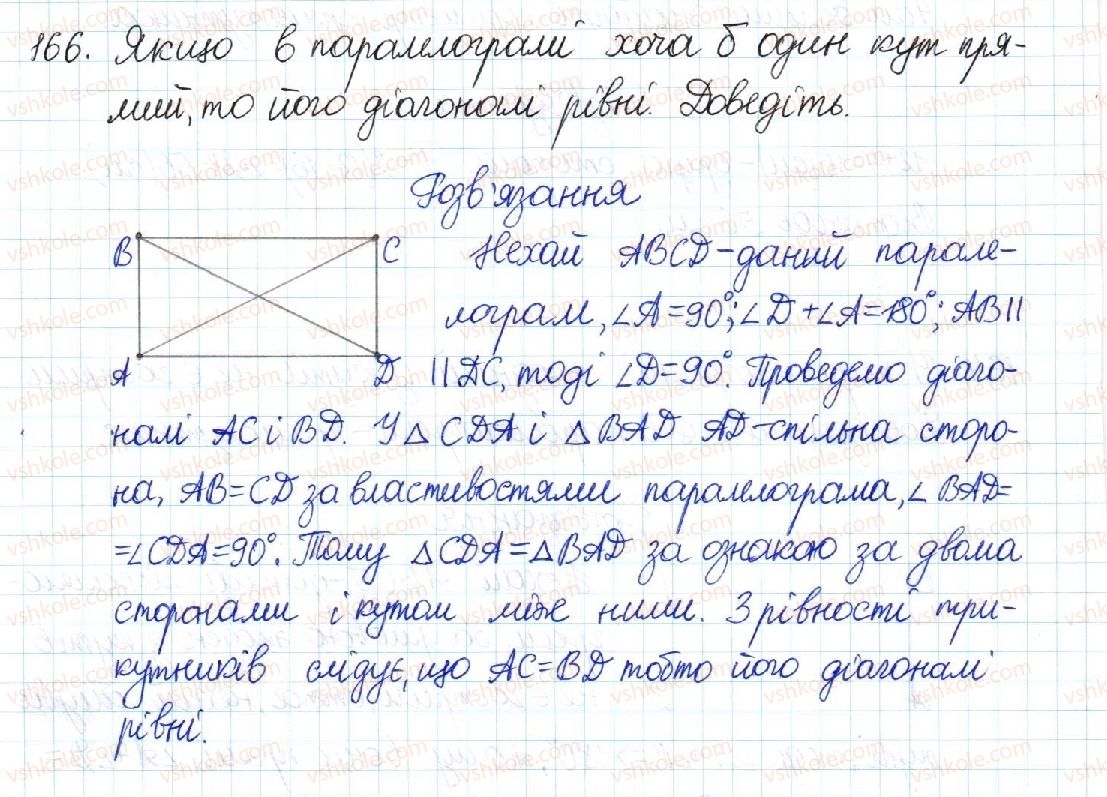 166. Якщо в паралелограмі хоча б один кут пря-
мий, то його діагоналі рівні. Доведіть.
Розв'язання
B C Нехай ABCD-даний парале-
лограм, ∠A=90°; ∠D+∠A=180°; AB||
A D ||DC, тоді ∠D=90°. Проведемо діаго-
налі AC і BD. У △CDA і △BAD AD-спільна сторо-
на, AB=CD за властивостями паралелограма, ∠BAD=
=∠CDA=90°. Тому △CDA=△BAD за ознакою за двома
сторонами і кутом між ними. З рівності три-
кутників слідує, що AC=BD тобто його діагоналі
рівні.